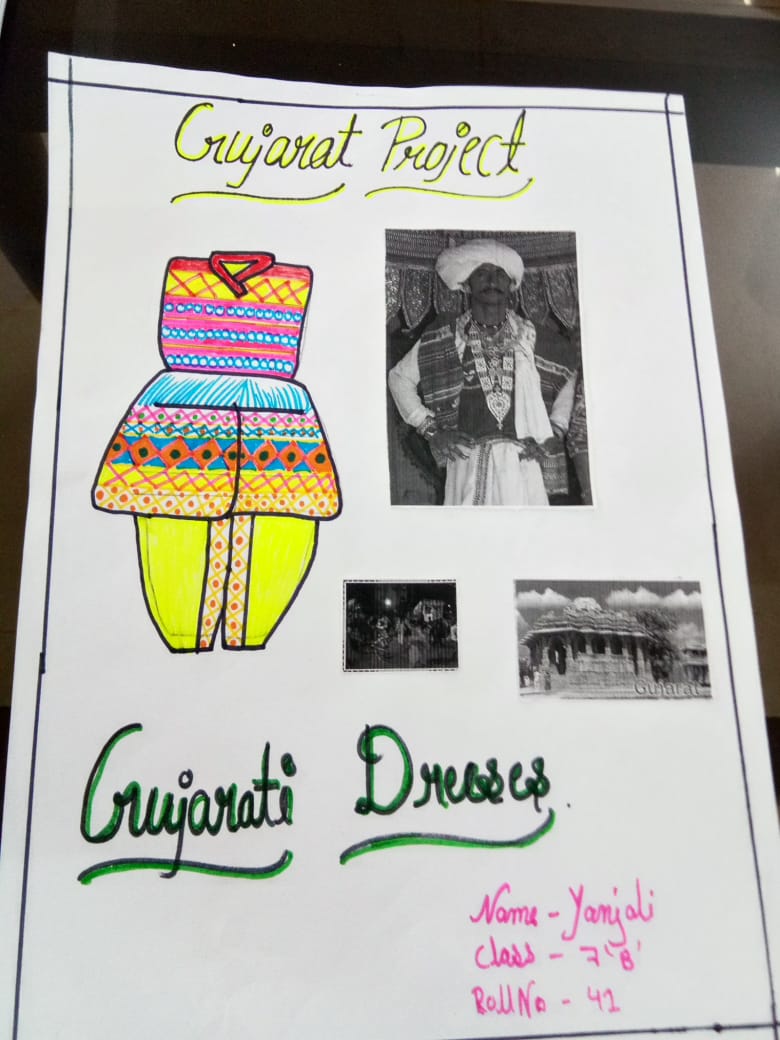 Gujarat Project
Gujarat
Gujarati Dresses.
Name - Yanjali
Class - 7 'B'
Roll No - 41